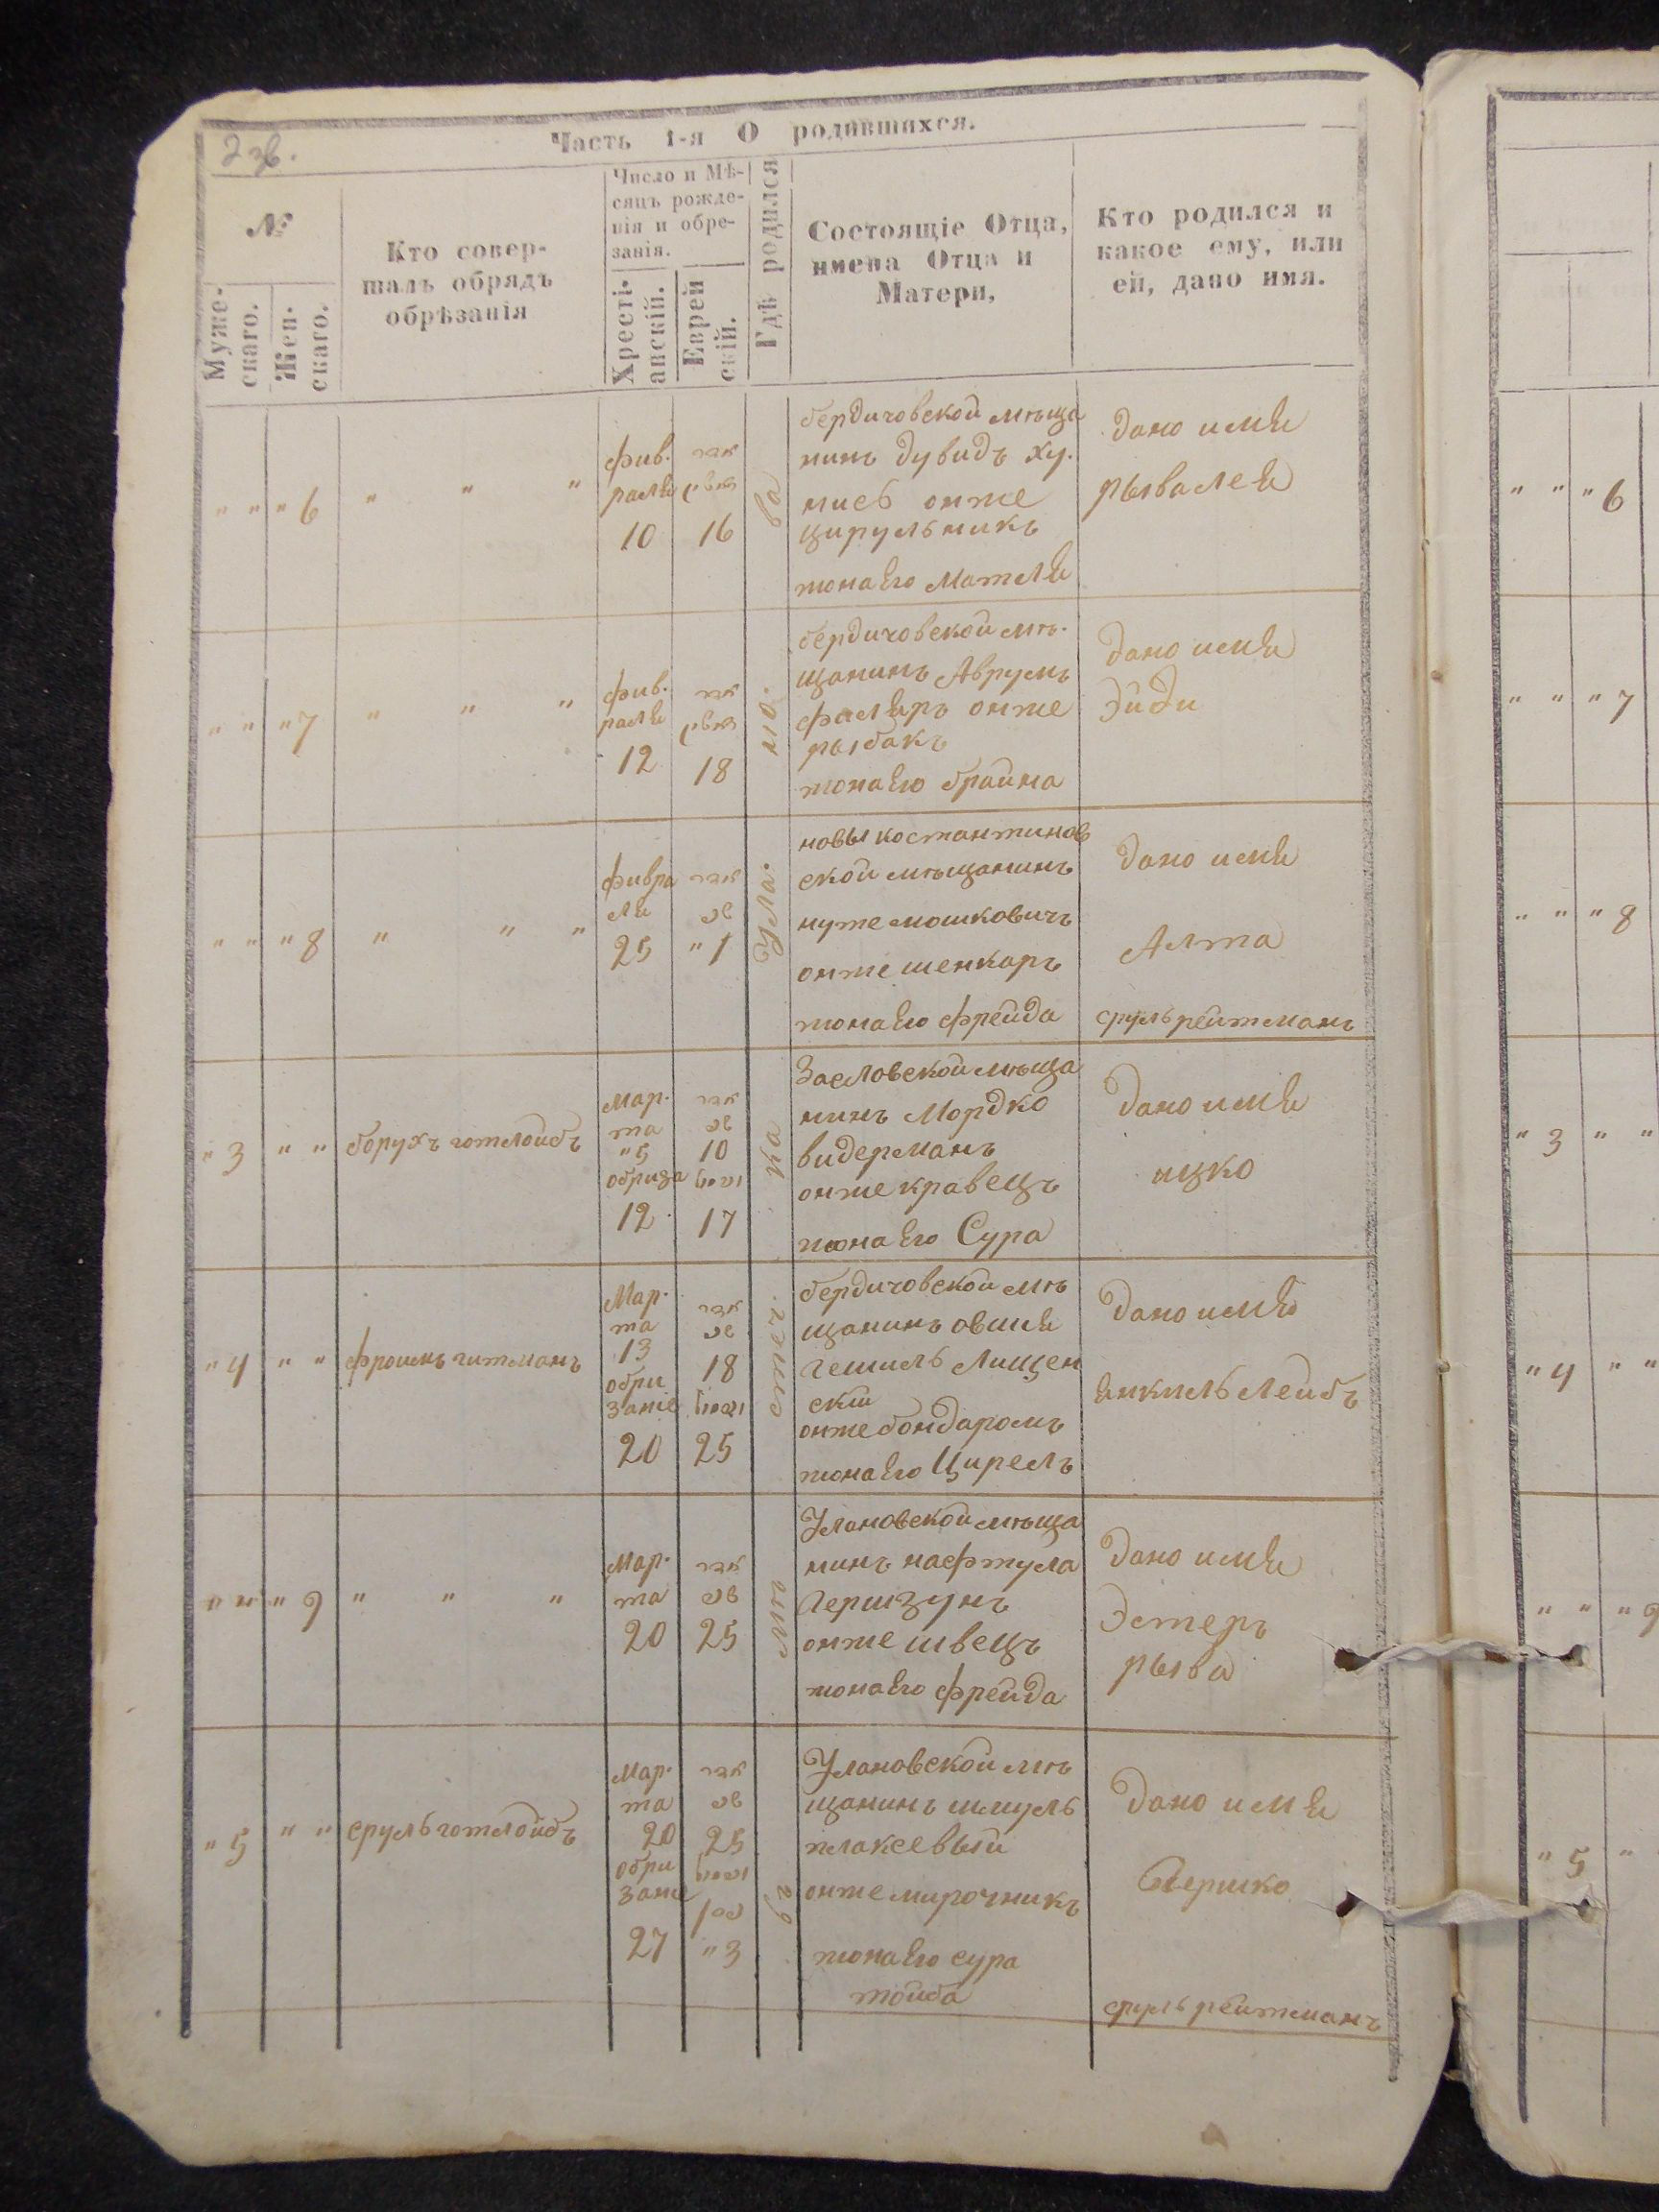 2 зв.
Часть 1-я О родившихся.
№
Муже-
скаго.
Жен-
скаго.
Кто совер-
шалъ обрядъ
обрѣзанія
Число и Мѣ-
сяцъ рожде-
нія и обре-
занія.
Хресті-
анскій.
Еврей
скій.
Гдѣ родился
Состоящіе Отца,
имена Отца и
Матери,
Кто родился и
какое ему, или
ей, дано имя.
" " " 6
" " "
фив.
раля
10
16
бердичовской мѣща
нинъ дувидъ ху.
онже
цирульникъ
жонаего Матля
дано имя
рывалея
" " " 7
" " "
фив.
раля
12
18
бердичовской мѣ.
щанинъ Аврумъ
фаляръ онже
рыбакъ
жонаего брайна
дано имя
Эйди
" " " 8
" " "
фивра
ля
25
" 1
новы костантинов
ской мѣщанинъ
нуте мошковичъ
онже шенкаръ
жонаего фрейда
дано имя
Алта
сруль рейтманъ
" 3 " "
борухъ готлойбъ
Мар.
та
" 5
обриза
12
10
17
Заславской мѣща
нинъ Мордко
видерманъ
онже кравецъ
жонаего Сура
дано имя
ицко
" 4 " "
фроимъ гитманъ
Мар.
та
13
обри
заніе
20
18
25
бердичовской мѣ
щанинъ овшия
гешиль Лищен
ски
онже бондаромъ
жонаего Цирелъ
дано имя
янкиль лейбъ
" " " 9
" " "
Мар.
та
20
25
Улановской мѣща
нинъ нафтула
гершзунъ
онже швецъ
жонаего фрейда
дано имя
Эстеръ
рыва
" 5 " "
сруль готлойбъ
Мар.
та
20
обри
заніе
27
25
" 3
Улановской мѣ
щанинъ шмуль
плаксевый
онже мирочникъ
жонаего сура
тойба
дано имя
Гершко
сруль рейтманъ
въ мѣстечка Ула. но. ва
" " " 6
" " " 7
" " " 8
" 3 " "
" 4 " "
" " " 9
" 5 "